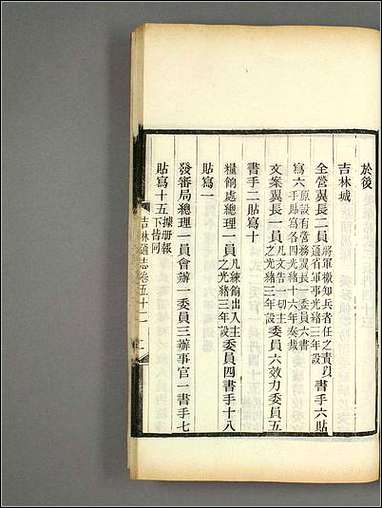 於後
吉林城
全營翼長二員將軍檄知兵者任之責以通省軍事光緒三年設書手六貼
寫六原設有營務翼長一委員六書手貼寫各四光緒十六年奏裁
文案翼長一員凡文告一切主之光緒三年設委員六效力委員五
書手二貼寫十
糧餉處總理一員凡練餉出入主之光緒三年設委員四書手十八
貼寫一
發審局總理一員會辦一委員三辦事官一書手七
貼寫十五據册報下皆同
吉林通志卷五十一 二